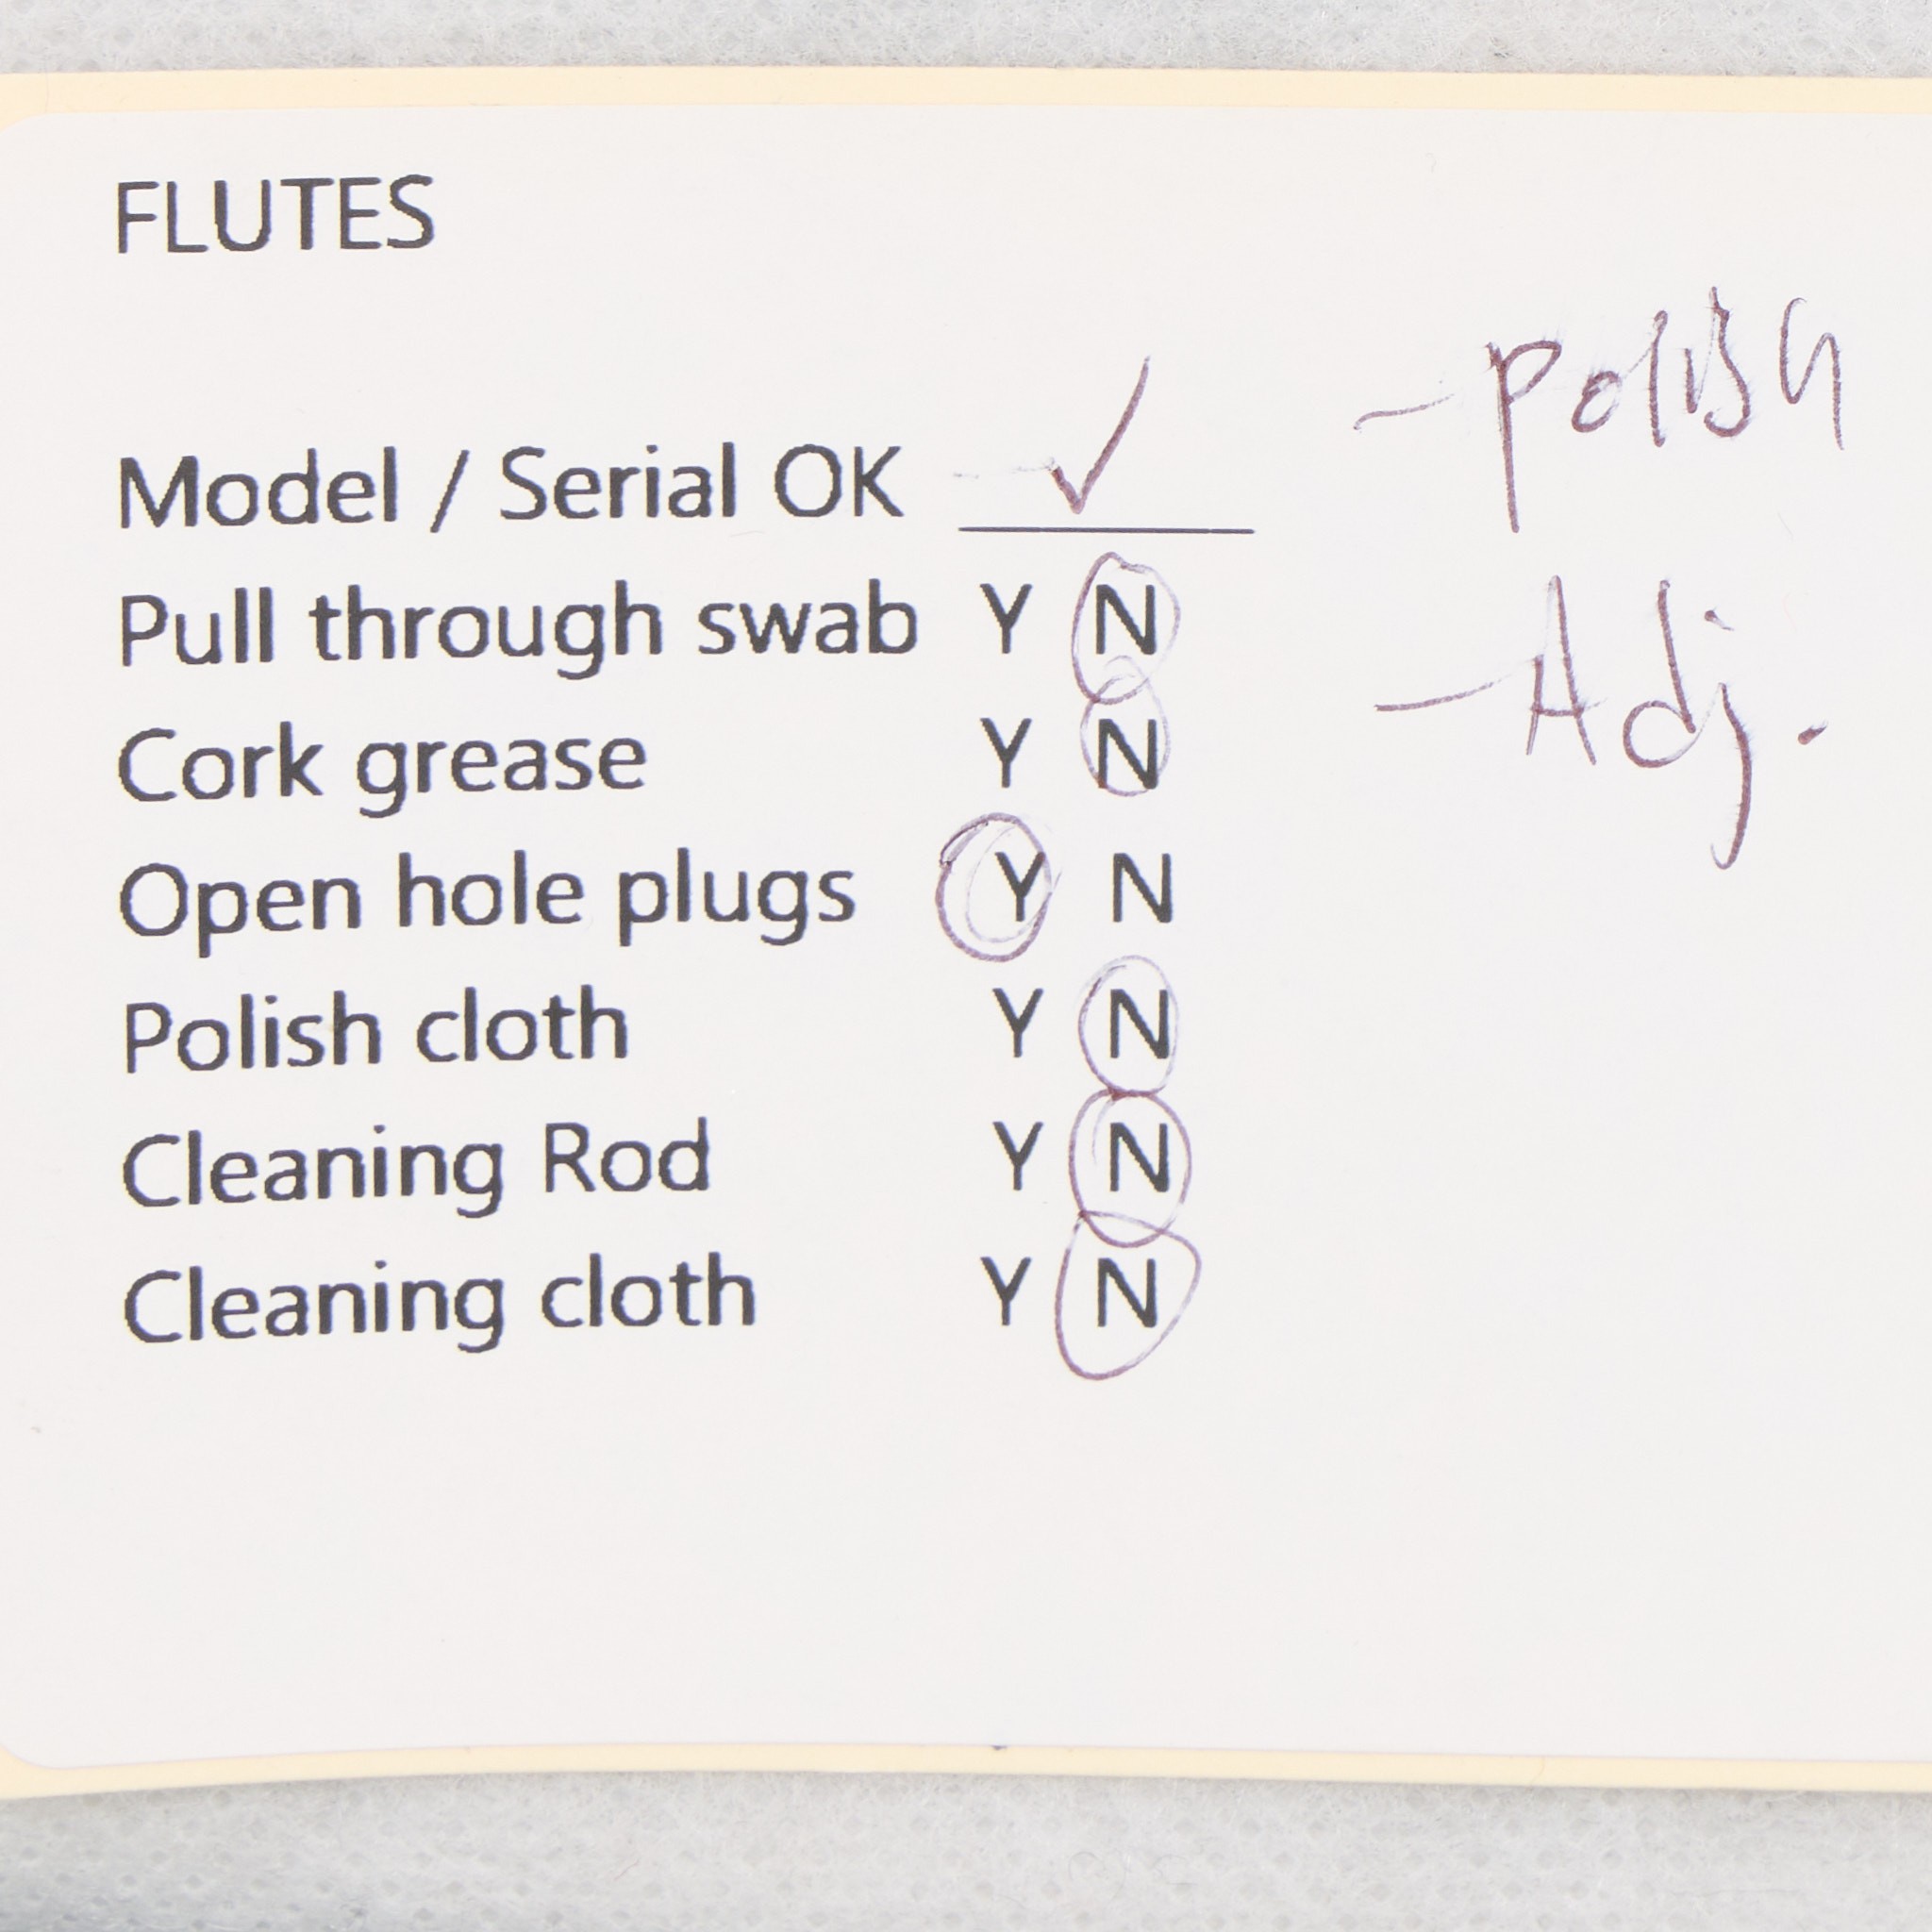 FLUTES
- Polish
Model / Serial OK ✓
Pull through swab Y N
- Adj.
Cork grease Y N
Open hole plugs Y N
Polish cloth Y N
Cleaning Rod Y N
Cleaning cloth Y N